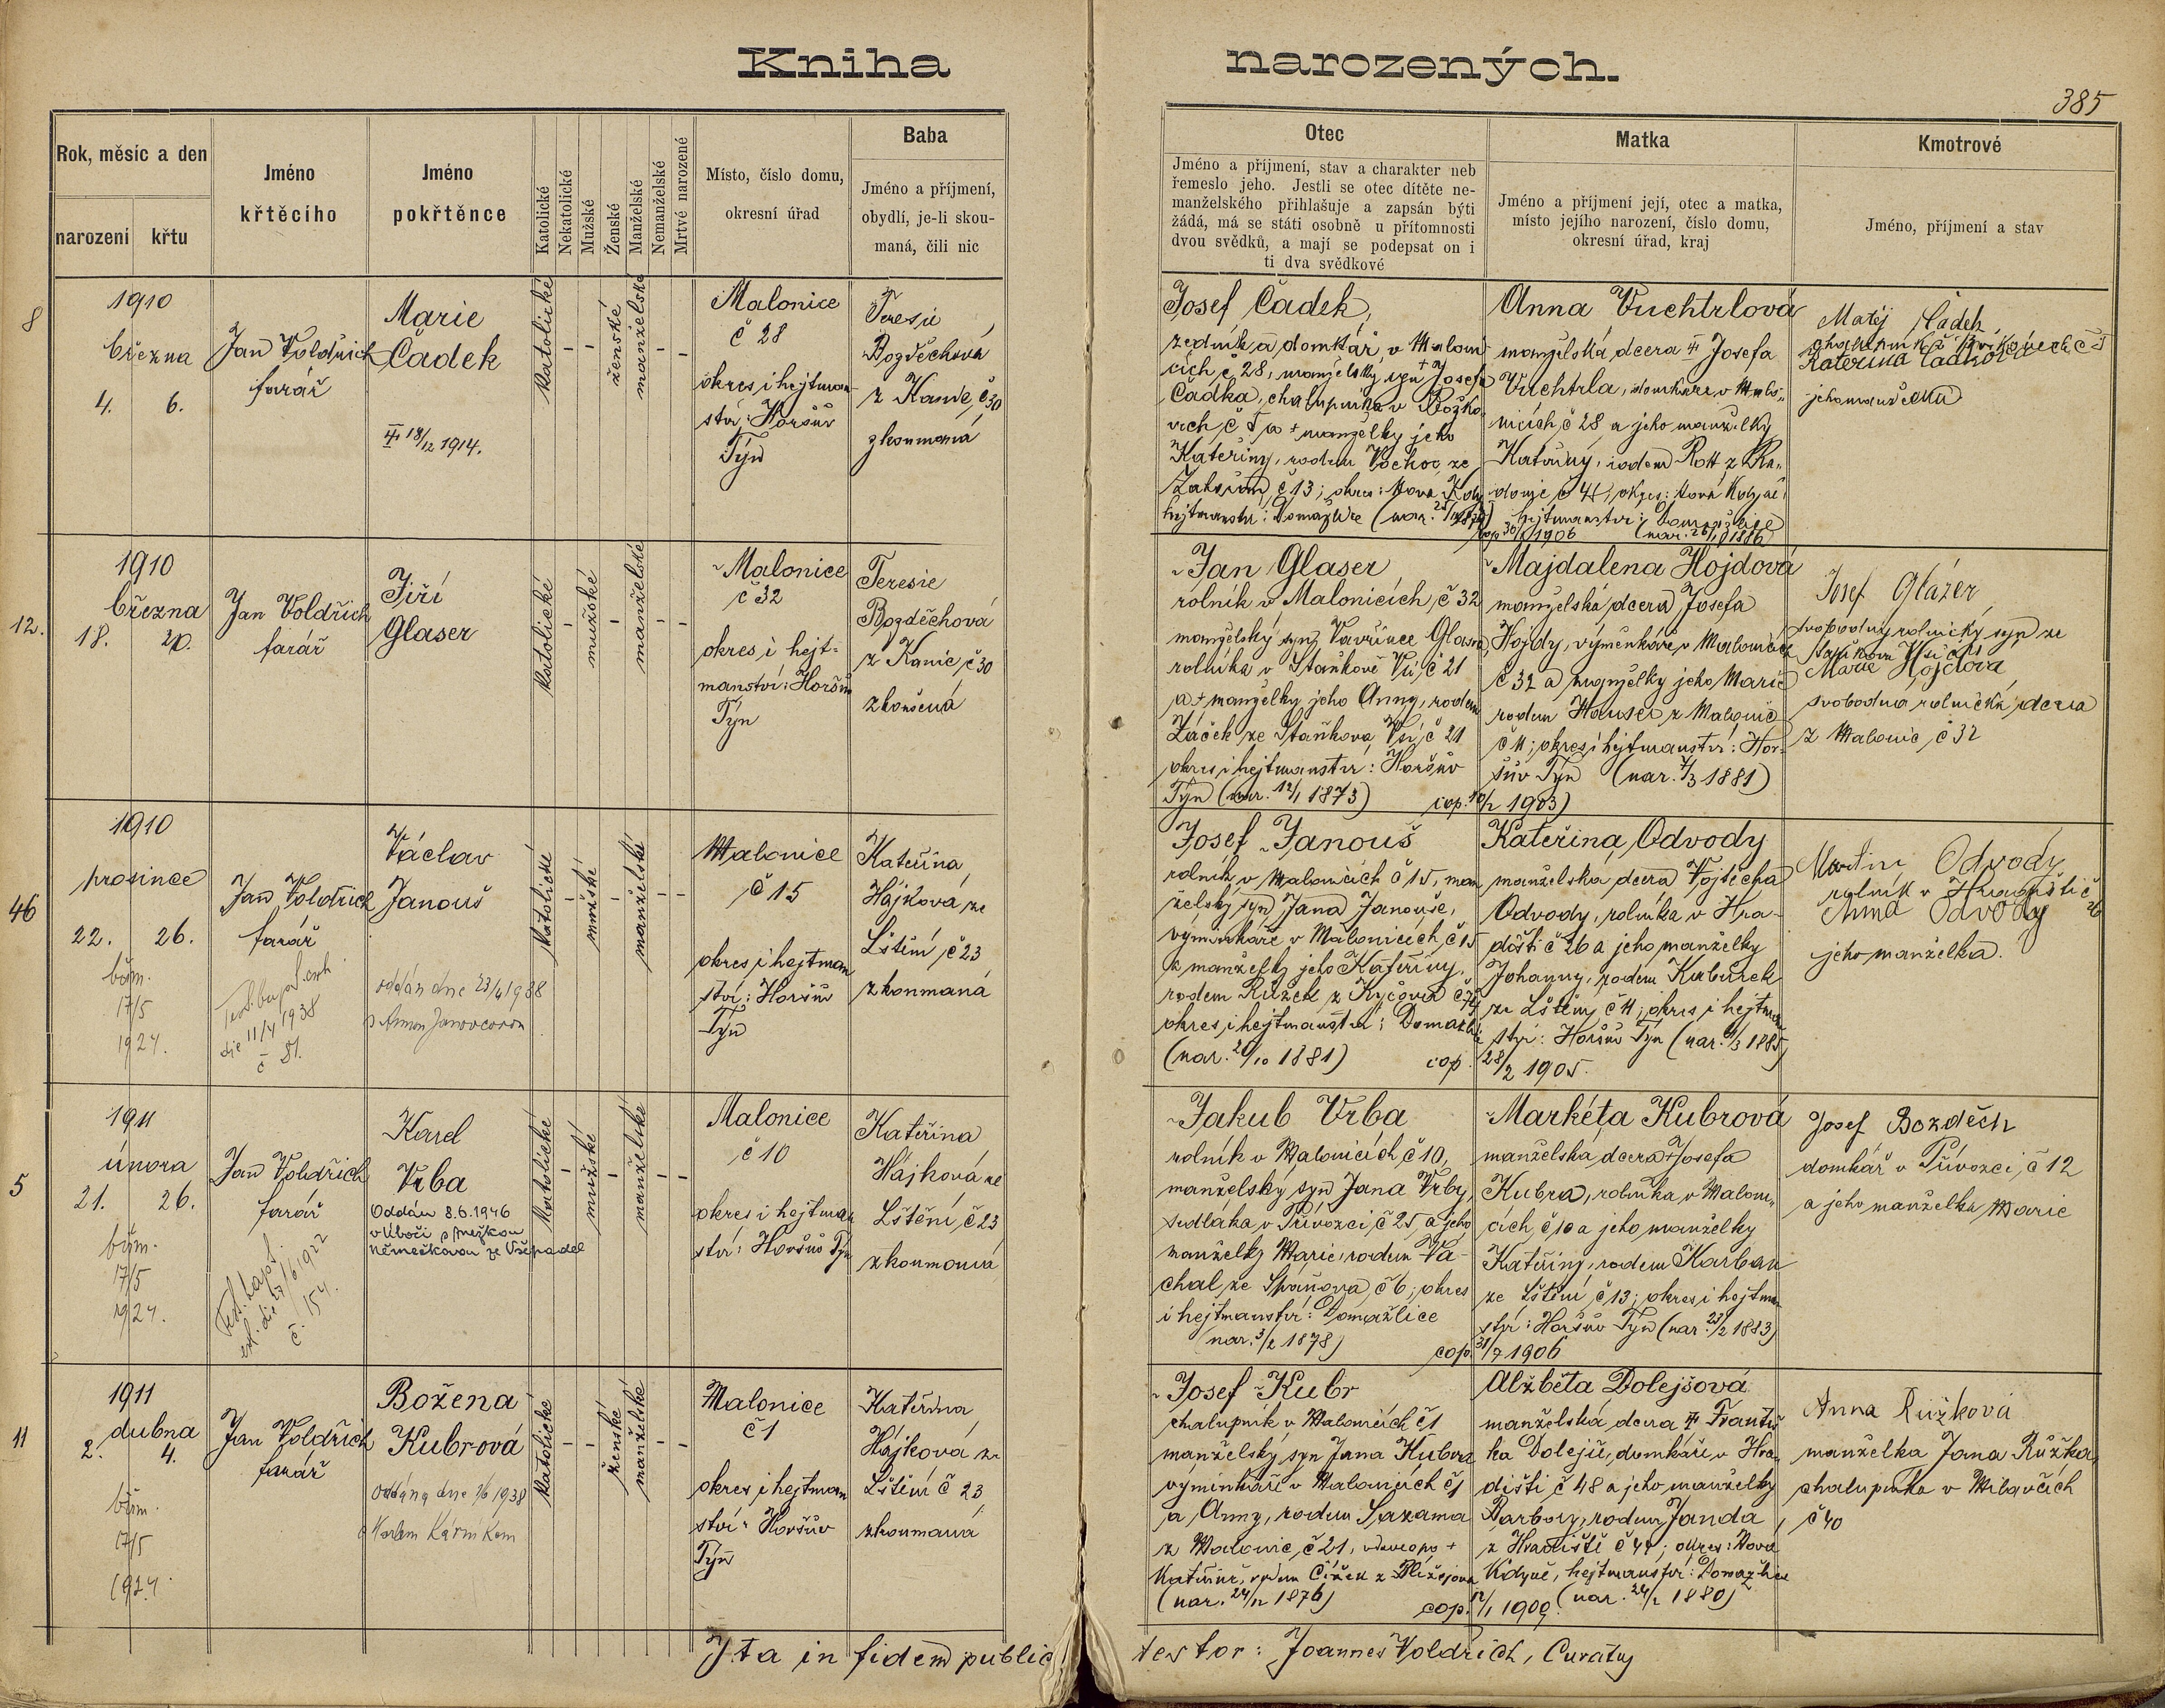 Kniha narozených.
385
Rok, měsíc a den
narození
křtu
Jméno
křtěcího
Jméno
pokřtěnce
Katolické
Nekatolické
Mužské
Ženské
Manželské
Nemanželské
Mrtvé narozené
Místo, číslo domu,
okresní úřad
Baba
Jméno a příjmení,
obydlí, je-li skou-
maná, čili nic
Otec
Jméno a příjmení, stav a charakter neb
řemeslo jeho. Jestli se otec dítěte ne-
manželského přihlašuje a zapsán býti
žádá, má se státi osobně u přítomnosti
dvou svědků, a mají se podepsat on i
ti dva svědkové
Matka
Jméno a příjmení její, otec a matka,
místo jejího narození, číslo domu,
okresní úřad, kraj
Kmotrové
Jméno, příjmení a stav
8
1910
března
4. 6.
Jan Voldřich
farář
Marie
Čadek
18/12 1914.
katolické
ženské
manželské
Malonice
č 28
okres i hejtman-
ství: Horšův
Týn
Teresie
Bozděchová
z Kanic č 30
zkoumaná
Josef Čadek,
zedník a domkář v Maloni
cích č 28, manželský syn + Josefa
Čádka, chalupníka v
a + manželky jeho
Kateřiny, rodem Vochoc ze
č 13; okres: Nová Kdy
hejtmanství: Domažlice
Anna Vuchtrlová
manželská dcera Josefa
Vuchtrla, domkáře v Malo-
nicích č 28 a jeho manželky
Kateřiny, rodem Rott z
okres: Nová Kdyně,
hejtmanství: Domažlice
1906
Matěj Čadek
Kateřina
jeho manželka
12.
1910
března
18. 20.
Jan Voldřich
farář
Jiří
Glaser
katolické
mužské
manželské
Malonice
č 32
okres i hejt-
manství: Horšův
Týn
Teresie
Bozděchová
z Kanic č 30
zkoušená
Jan Glaser
rolník v Malonicích č 32
manželský syn Vavřince Glasra,
rolníka v Staňkově Vsi č 21
a + manželky jeho Anny, rodem
Žáček ze Staňkova Vsi č 21
okres i hejtmanství: Horšův
Týn (nar. 12/1 1873) cop. 10/2 1903)
Majdalena Hojdová
manželská dcera Josefa
Hojdy, výměnkáře v Malonicích
č 32 a manželky jeho Marie
rodem Hauser z Malonic
č 11; okres i hejtmanství: Hor-
šův Týn (nar. 7/3 1881)
Josef Glázer
svobodný rolnický syn ze
Marie Hojdova
svobodná rolnická dcera
z Malonic č 32
46
1910
prosince
22. 26.
biřm.
17/5
1924.
Jan Voldřich
farář
die 11/4 1938
č 81.
Václav
Janouš
oddán dne 23/4 1938
katolické
mužské
manželské
Malonice
č 15
okres i hejtman
ství: Horšův
Týn
Kateřina
Hájková ze
Lštění č 23
zkoumaná
Josef Janouš
rolník v Malonicích č 15, man
želský syn Jana Janouše,
výminkáře v Malonicích č 15
a manželky jeho Kateřiny,
rodem Růžek z Kyčova č
okres i hejtmanství: Domažlice
(nar. 20/10 1881) cop. 28/2 1905.
Kateřina Odvody
manželská dcera Vojtěcha
Odvody, rolníka v Hra-
dišti č 26 a jeho manželky
Johanny, rodem Kuburek
ze Lštění č 11; okres i hejtman
ství: Horšův Týn (nar. 1/3 1885)
Martin Odvody
rolník v Hradišti č 26
Anna Odvody
jeho manželka.
5
1911
února
21. 26.
biřm.
17/5
1924.
Jan Voldřich
farář
č. 154.
Karel
Vrba
Oddán 8.6.1946
v Úboči s Anežkou
Němečkovou ze Všepadel
katolické
mužské
manželské
Malonice
č 10
okres i hejtman
ství: Horšův Týn
Kateřina
Hájková ze
Lštění č 23
zkoumaná
Jakub Vrba
rolník v Malonicích č 10,
manželský syn Jana Vrby,
sedláka v Přívozci č 25 a jeho
manželky Marie, rodem Va-
chal ze Spáňova č 6; okres
i hejtmanství: Domažlice
nar. 3/2 1878) cop. 31/7 1906
Markéta Kubrová
manželská dcera + Josefa
Kubra, rolníka v Maloni-
cích č 10 a jeho manželky
Kateřiny, rodem Karban
ze Lštění č 13; okres i hejtman
ství: Horšův Týn (nar. 23/2 1883)
Josef Bozděch
domkář v Přívozci č 12
a jeho manželka Marie
11
1911
dubna
2. 4.
biřm.
17/5
1924.
Jan Voldřich
farář
Božena
Kubrová
oddána dne 7/6 1938
s Karlem Kárníkem
katolické
ženské
manželské
Malonice
č 1
okres i hejtman
ství: Horšův
Týn
Kateřina
Hájková ze
Lštění č 23
zkoumaná
Josef Kubr
chalupník v Malonicích č 1
manželský syn Jana Kubra
výminkáře v Malonicích č 1
a Anny, rodem Sazama
z Malonic č 21, vdovec po +
Kateřině, rodem Čížek z Blížejova
(nar. 24/12 1876) cop. 12/1 1909
Alžběta Dolejšová
manželská dcera Františ
ka Dolejše, domkáře v Hra-
dišti č 48 a jeho manželky
Barbory, rodem Janda
z Hradiště č 44; okres: Nová
Kdyně, hejtmanství: Domažlice
(nar. 24/2 1880)
Anna Růžková
manželka Jana Růžka,
chalupníka v Milavčích
č 40
Ita in fidem publicam testor: Joannes Voldřich, Curatus